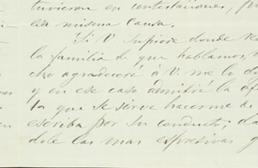 tuvieron en contestaciones, 
la misma causa.
Si V supiese donde
la familia de que hablamos,
cho agradeceré á V. me lo
y en ese caso admitir la
ta que se sirve hacerme
escriba por su conducto,
dole las mas espresivas g